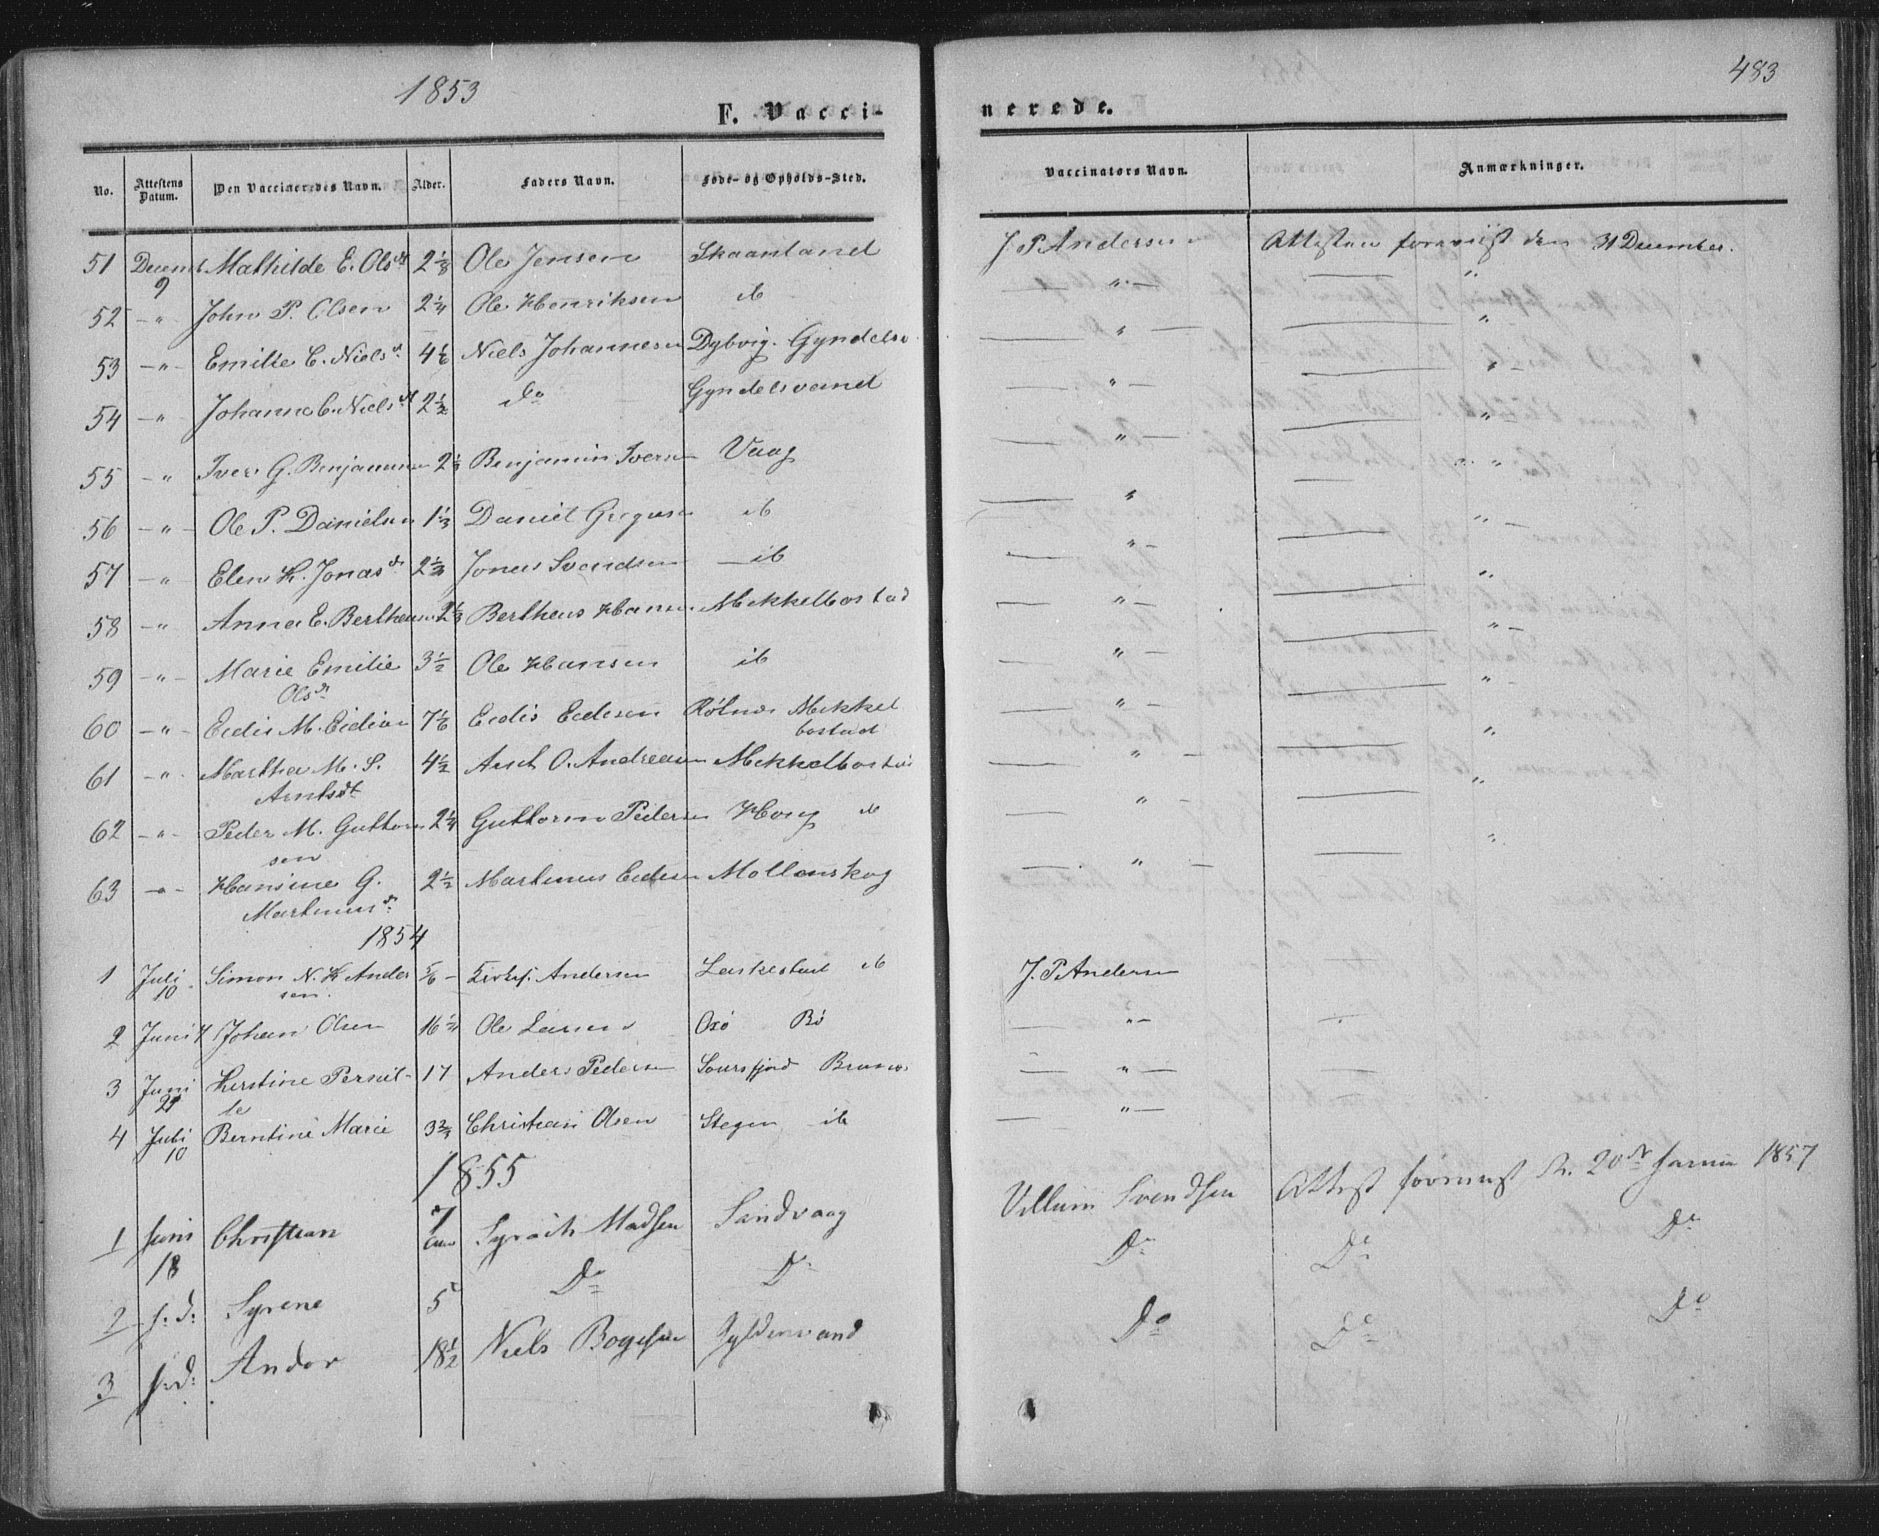 1853
483
F. Vacci-
nerede.
No. Attestens Datum. Den Vaccineredes Navn. Alder. Faders Navn. Føde- og Opholds-Sted. Vaccinators Navn. Anmærkninger.
51 Decemb 9 Mathilde E. Olsdt 2 1/8 Ole Jensen Skaanland J. P. Andersen Attesten foreviist den 31 December.
52 -"- John P. Olsen 2 1/4 Ole Henriksen ib — " — — "
53 -"- Emilie C. Nielsd. 4 1/6 Niels Johannesen Dybvig. Gyndelsv — " — — "
54 -"- Johanne C. Nielsdt 2 1/2 do Gyndelsvand — " — — " -
55 -"- Iver G. Benjamins 2 1/3 Benjamin Iversen Vaag — " — — "
56 -"- Ole P. Danielsen 1 1/3 Daniel ib — " — "
57 -"- Elen K. Jonasd. 2 1/2 Jonas Svendsen — ib — " — — " —
58 -"- Anna E. Bertheus 2 1/3 Bertheus Hansen Mekkelbostad — " — — "
59 -"- Marie Emilie 3 1/2 Ole Hansen ib — " — — " —
Olsdt
60 -"- Eedis M. 7 1/6 Eedis Eedesen Mekkel — " — — " -
bostad
61 -"- Martha M. S. 4 1/2 Arnt O. Andreasen Mekkelbostad — " — — "
Arntsdt
62 -"- Peder M. Guttorm 2 1/4 Guttorm Pedersen Houg ib — " - — "
sen
63 -"- Hansine G. 2 1/2 Martinus Eedesen Mollenskog — " — — "
Martinusd.
1854
1 Juli 10 Simon N. K Ander 5/6 — Andersen Laskestad ib J. P. Andersen
sen.
2 Juni 4 Johan Olsen 16 1/2 Ole Larsen Oxö Bö — "-
3 Juni 21 Kerstine Pernil- 17 Anders Pedersen Soursfjord — " —
le
4 Juli 10 Berntine Marie 3 2/3 Christian Olsen Stegen ib — " —
1855
1 Juni 18 Christian 7 Syrach Madsen Sandvaag Villum Svendsen Attest foreviist d. 20de Januar 1857
2 s. d. Syrene 5 Do Do Do Do Do
3 s. d. Andor 18 1/2 Niels Bogesen Gyldenvand Do Do Do